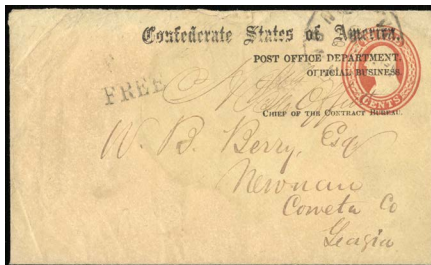 Confederate States of America,
POST OFFICE DEPARTMENT.
OFFICIAL BUSINESS
FREE
CENTS
CHIEF OF THE CONTRACT BUREAU.
W. B. Berry, Esq
Newnan
Coweta Co
Geogia